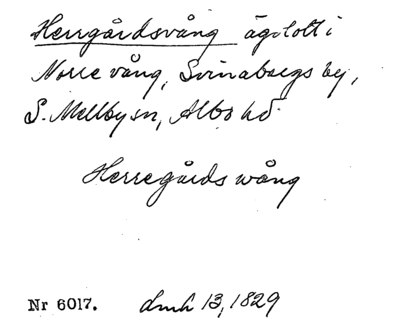 Herrgårdsvång ägolott i
Norre vång, Svinabergs by,
S. Mellby sn, Albo hd
Herregårds wång
Nr 6017. dmh 13, 1829